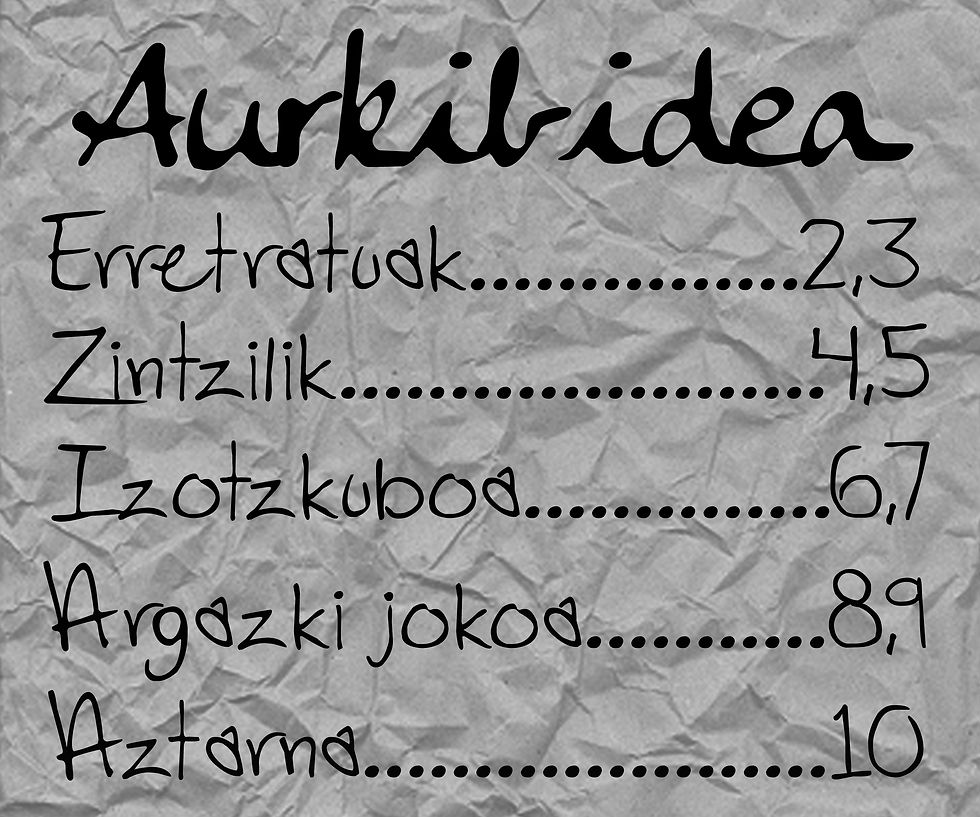 Aurkibidea
Erretratuak...............2,3
Zintzilik......................4,5
Izotzkuboa..............6,7
Argazki jokoa...........8,9
Aztarna.....................10